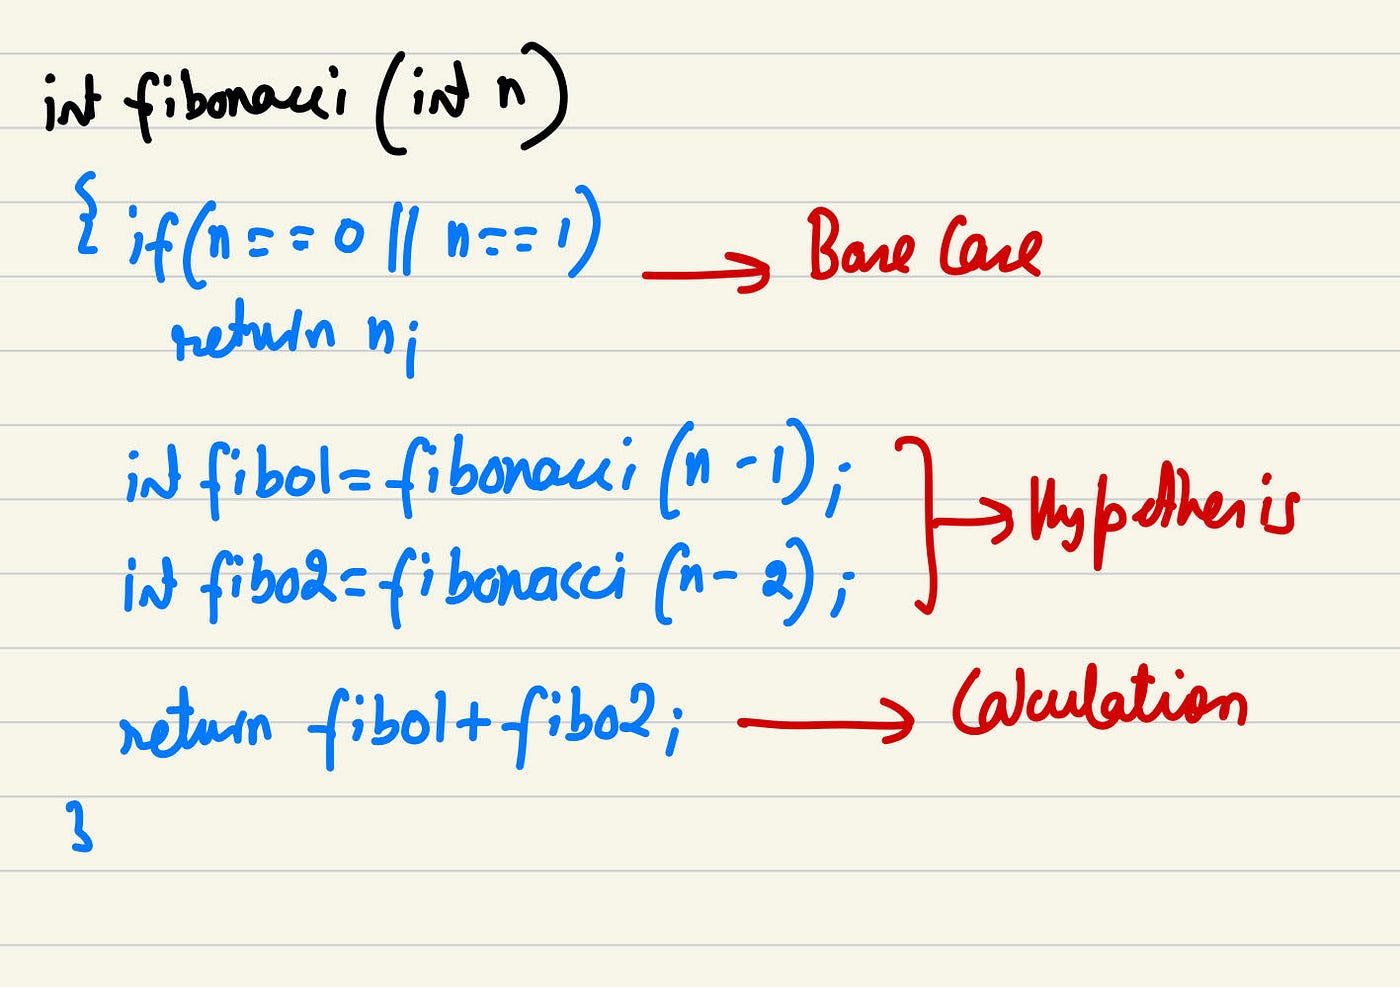 int fibonacci (int n)
{ if(n == 0 || n == 1) → Base Case
return n;
int fibo1 = fibonacci (n - 1);
int fibo2 = fibonacci (n - 2);
} → Hypothesis
return fibo1 + fibo2; → Calculation
}